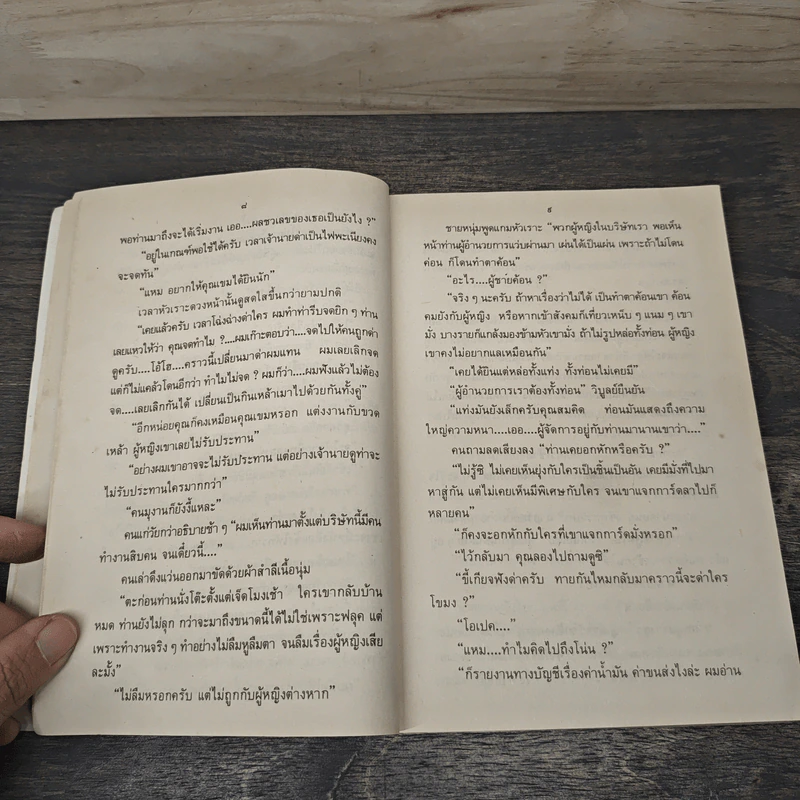 ๘
พอท่านมาถึงจะได้เริ่มงาน เออ....ผลชวเลขของเธอเป็นยังไง ?”
“อยู่ในเกณฑ์พอใช้ได้ครับ เวลาเจ้านายด่าเป็นไฟพะเนียงคง
จะจดทัน”
“แหม อยากให้คุณเขมได้ยินนัก”
เวลาหัวเราะดวงหน้านั้นดูสดใสขึ้นกว่ายามปกติ
“เคยแล้วครับ เวลาโฉ่งฉ่างด่าใคร ผมทำท่ารีบจดยิก ๆ ท่าน
เลยแหวให้ว่า คุณจดทำไม ?....ผมเก๊าะตอบว่า....จดไปให้คนถูกด่า
ดูครับ....โอ้โฮ....คราวนี้เปลี่ยนมาด่าผมแทน ผมเลยเลิกจด
แต่ก็ไม่แคล้วโดนอีกว่า ทำไมไม่จด ? ผมก็ว่า....ผมฟังแล้วไม่ต้อง
จด....เลยเลิกกันได้ เปลี่ยนเป็นกินเหล้าเมาไปด้วยกันทั้งคู่”
“อีกหน่อยคุณก็คงเหมือนคุณเขมหรอก แต่งงานกับขวด
เหล้า ผู้หญิงเขาเลยไม่รับประทาน”
“อย่างผมเขาอาจจะไม่รับประทาน แต่อย่างเจ้านายดูท่าจะ
ไม่รับประทานใครมากกว่า”
“คนมุงานก็ยังงี้แหละ”
คนแก่วัยกว่าอธิบายช้า ๆ “ผมเห็นท่านมาตั้งแต่บริษัทนี้มีคน
ทำงานสิบคน จนเดี๋ยวนี้....”
คนเล่าดึงแว่นออกมาขัดด้วยผ้าสำลีเนื้อนุ่ม
“ตะก่อนท่านนั่งโต๊ะตั้งแต่เจ็ดโมงเช้า ใครเขากลับบ้าน
หมด ท่านยังไม่ลุก กว่าจะมาถึงขนาดนี้ได้ไม่ใช่เพราะฟลุค แต่
เพราะทำงานจริง ๆ ทำอย่างไม่ลืมหูลืมตา จนลืมเรื่องผู้หญิงเสีย
ละมั้ง”
“ไม่ลืมหรอกครับ แต่ไม่ถูกกับผู้หญิงต่างหาก”
๙
ชายหนุ่มพูดแกมหัวเราะ “พวกผู้หญิงในบริษัทเรา พอเห็น
หน้าท่านผู้อำนวยการแว่บผ่านมา เผ่นได้เป็นเผ่น เพราะถ้าไม่โดน
ค่อน ก็โดนทำตาค้อน”
“อะไร....ผู้ชายค้อน ?”
“จริง ๆ นะครับ ถ้าหาเรื่องว่าไม่ได้ เป็นทำตาค้อนเขา ค้อน
คมยังกับผู้หญิง หรือหากเข้าสังคมก็เที่ยวเหน็บ ๆ แนม ๆ เขา
มั่ง บางรายก็แกล้งมองข้ามหัวเขามั่ง ถ้าไม่รูปหล่อทั้งท่อน ผู้หญิง
เขาคงไม่อยากแลเหมือนกัน”
“เคยได้ยินแต่หล่อทั้งแท่ง ทั้งท่อนไม่เคยมี”
“ผู้อำนวยการเราต้องทั้งท่อน” วิบูลย์ยืนยัน
“แท่งมันยังเล็กครับคุณสมคิด ท่อนมันแสดงถึงความ
ใหญ่ความหนา....เออ....ผู้จัดการอยู่กับท่านมานานเขาว่า....”
คนถามลดเสียงลง “ท่านเคยอกหักหรือครับ ?”
“ไม่รู้ซิ ไม่เคยเห็นยุ่งกับใครเป็นชิ้นเป็นอัน เคยมีมั่งที่ไปมา
หาสู่กัน แต่ไม่เคยเห็นมีพิเศษกับใคร จนเขาแจกการ์ดลาไปก็
หลายคน”
“ก็คงจะอกหักกับใครที่เขาแจกการ์ดมั่งหรอก”
“ไว้กลับมา คุณลองไปถามดูซิ”
“ขี้เกียจฟังด่าครับ ทายกันไหมกลับมาคราวนี้จะด่าใคร
โขมง ?”
“โอเปค....”
“แหม....ทำไมคิดไปถึงโน่น ?”
“ก็รายงานทางบัญชีเรื่องค่าน้ำมัน ค่าขนส่งไงล่ะ ผมอ่าน